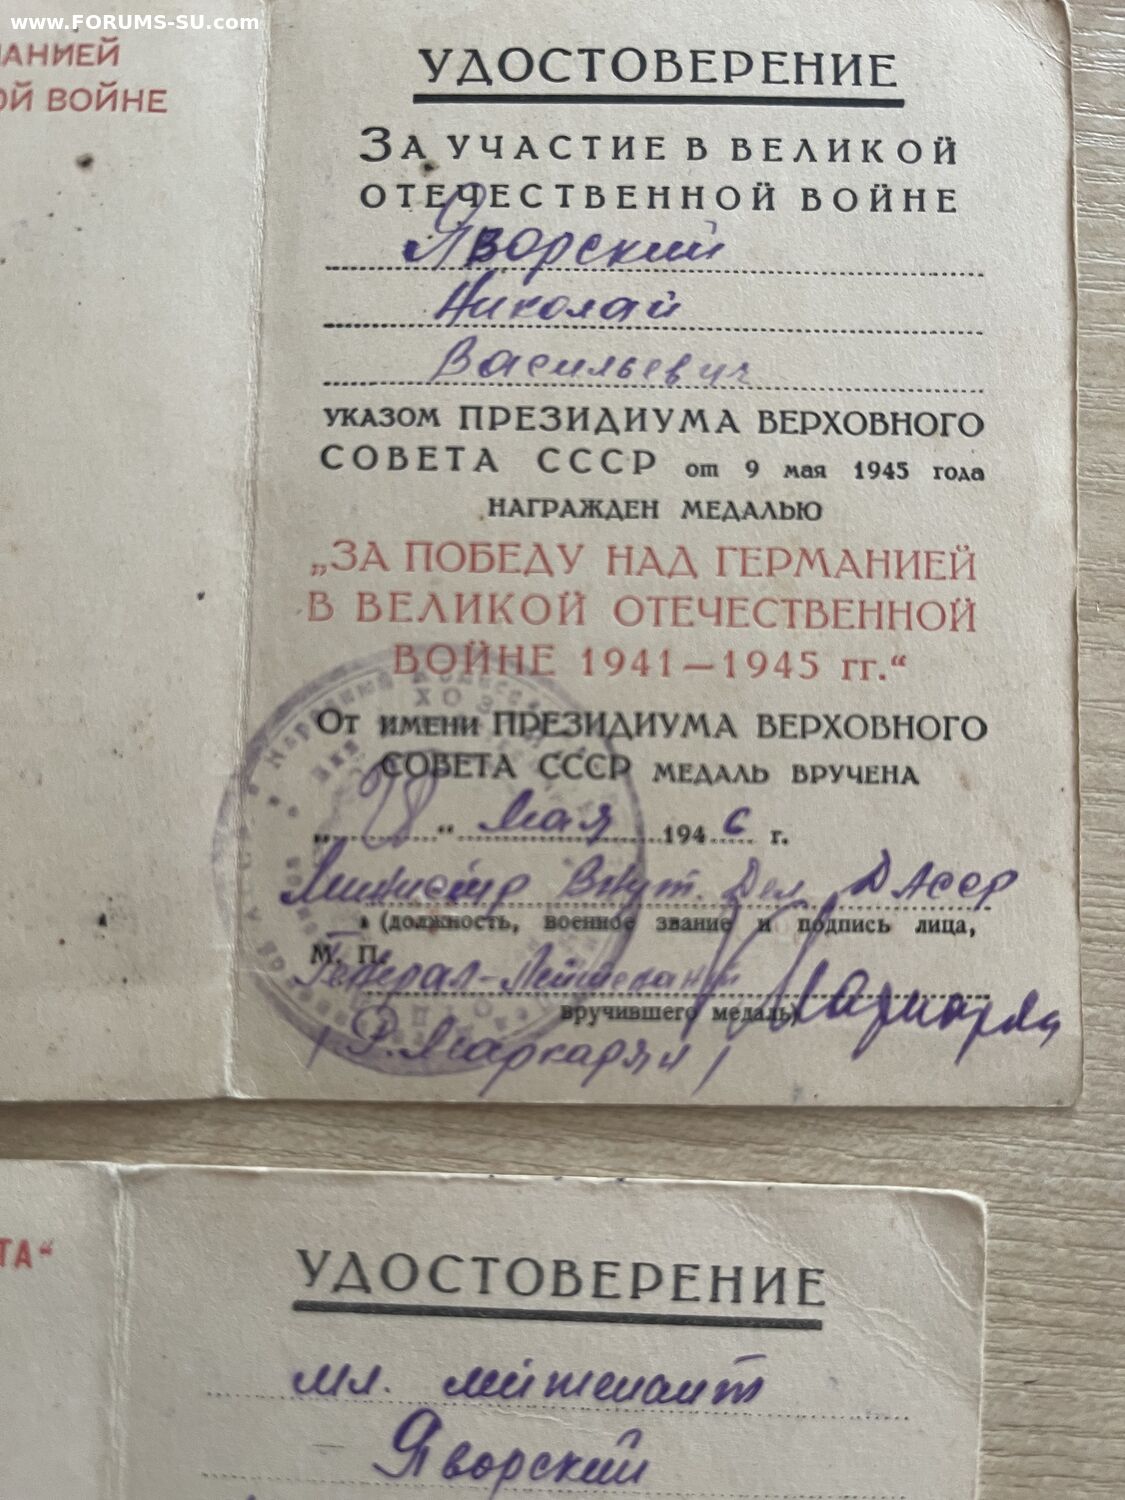 www.FORUMS-SU.com
МАНИЕЙ
ОЙ ВОЙНЕ
УДОСТОВЕРЕНИЕ
ЗА УЧАСТИЕ В ВЕЛИКОЙ
ОТЕЧЕСТВЕННОЙ ВОЙНЕ
Яворский
Николай
Васильевич
УКАЗОМ ПРЕЗИДИУМА ВЕРХОВНОГО
СОВЕТА СССР от 9 мая 1945 года
НАГРАЖДЕН МЕДАЛЬЮ
„ЗА ПОБЕДУ НАД ГЕРМАНИЕЙ
В ВЕЛИКОЙ ОТЕЧЕСТВЕННОЙ
ВОЙНЕ 1941—1945 гг.“
От имени ПРЕЗИДИУМА ВЕРХОВНОГО
СОВЕТА СССР МЕДАЛЬ ВРУЧЕНА
„ “ Мая 1946 г.
Министр Внут. Дел ДАССР
(должность, военное звание и подпись лица,
М. П.
Генерал-Лейтенант
вручившего медаль)
/Р. Маркарян/
ТА“
УДОСТОВЕРЕНИЕ
мл. лейтенант
Яворский